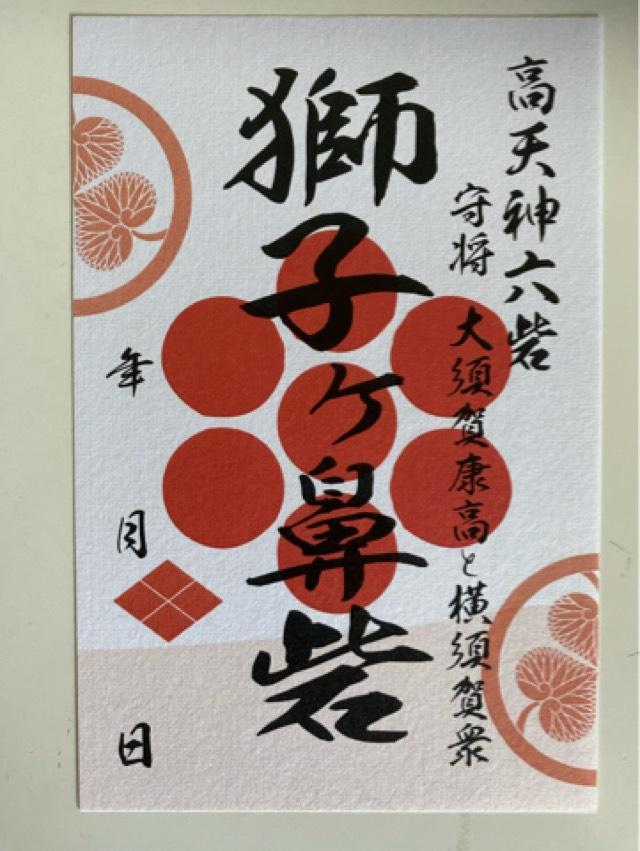 高天神六砦
守将 大須賀康高と横須賀衆
獅子ヶ鼻砦
年
月
日